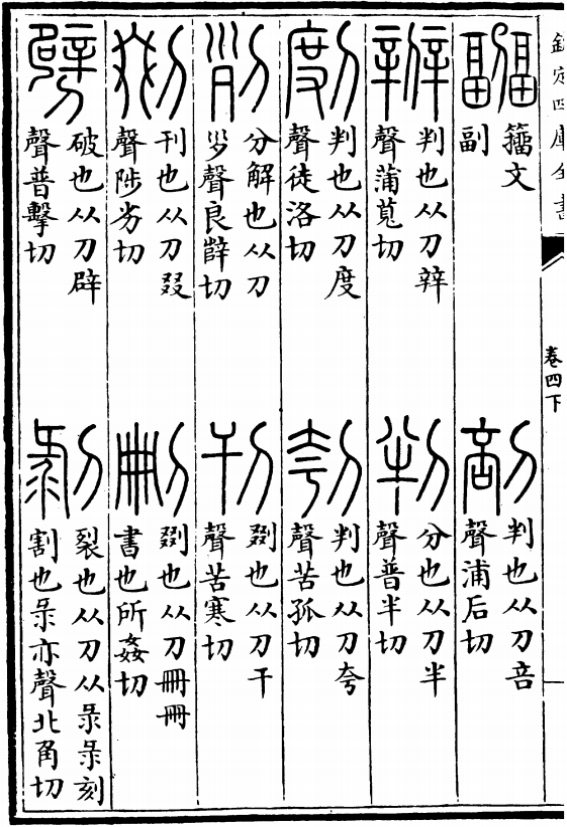 欽定四庫全書
卷四下
副
籀文
副
剖
判也从刀咅
聲浦后切
辧
判也从刀辡
聲蒲莧切
判
分也从刀半
聲普半切
剫
判也从刀度
聲徒洛切
刳
判也从刀夸
聲苦孤切
列
分解也从刀
𡿪聲良辥切
刊
剟也从刀干
聲苦寒切
剟
刊也从刀叕
聲陟劣切
刪
剟也从刀冊冊
書也所姦切
劈
破也从刀辟
聲普擊切
剝
裂也从刀从彔彔刻
割也彔亦聲北角切